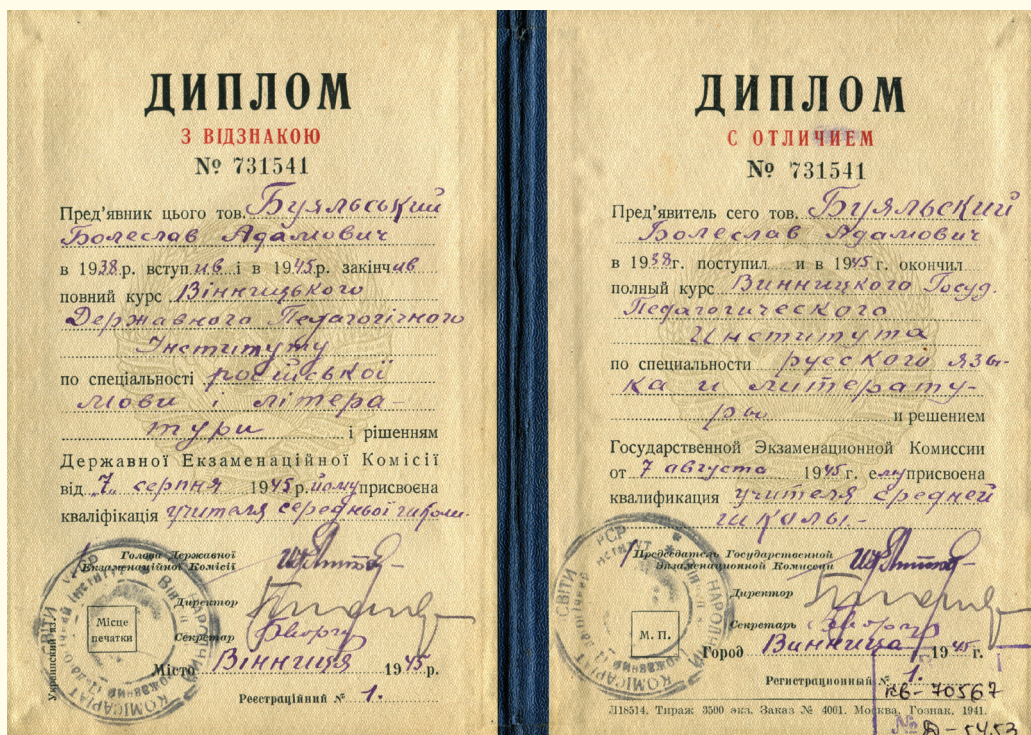 ДИПЛОМ
З ВІДЗНАКОЮ
№ 731541
Пред'явник цього тов. Буяльський
Болеслав Адамович
в 1938 р. вступив і в 1945 р. закінчив
повний курс Вінницького
Державного Педагогічного
Інституту
по спеціальності російської
мови і літера-
тури і рішенням
Державної Екзаменаційної Комісії
від 7 серпня 1945 р. йому присвоєна
кваліфікація учителя середньої школи.
Голова Державної
Екзаменаційної Комісії
Директор
Секретар
Місце
печатки
Місто Вінниця 1945 р.
Реєстраційний № 1.
Украинский яз.
ДИПЛОМ
С ОТЛИЧИЕМ
№ 731541
Пред'явитель сего тов. Буяльский
Болеслав Адамович
в 1938 г. поступил и в 1945 г. окончил
полный курс Винницкого Госуд.
Педагогического
Института
по специальности русского язы-
ка и литерату-
ры и решением
Государственной Экзаменационной Комиссии
от 7 августа 1945 г. ему присвоена
квалификация учителя средней
школы.-
Председатель Государственной
Экзаменационной Комиссии
Директор
Секретарь
М. П.
Город Винница 1945 г.
Регистрационный № 1.
КВ-70567
Л18514. Тираж 3500 экз. Заказ № 4001. Москва, Гознак. 1941.
№ Д-5453